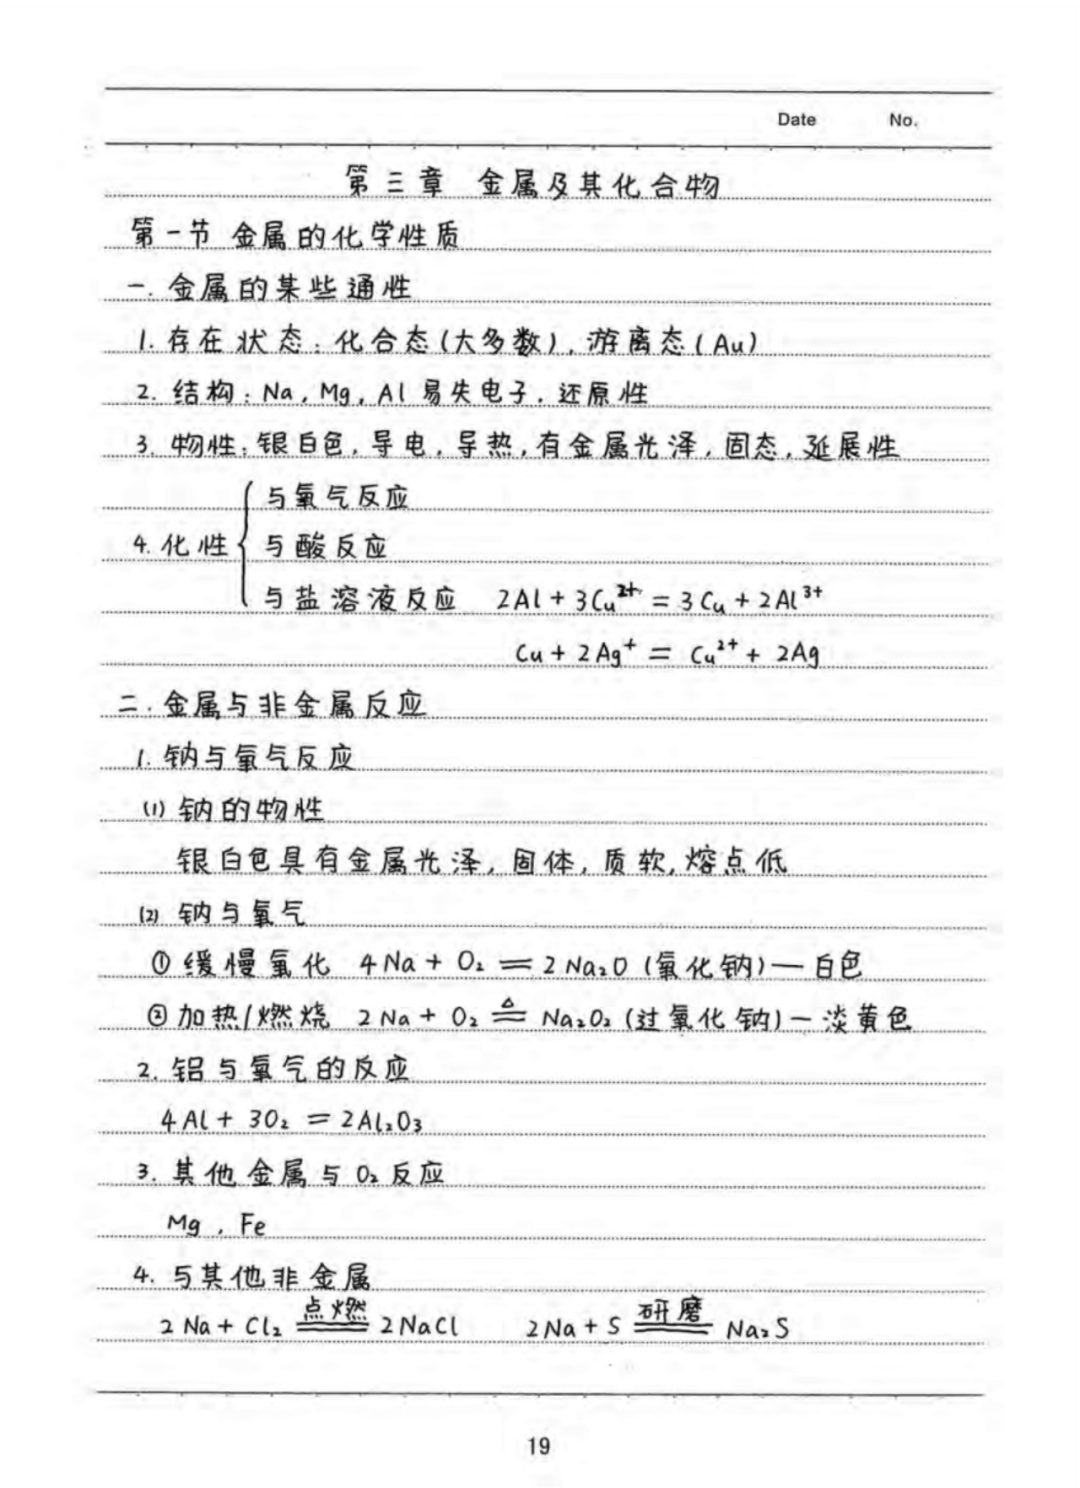 Date No.
第三章 金属及其化合物
第一节 金属的化学性质
一. 金属的某些通性
1. 存在状态：化合态(大多数), 游离态(Au)
2. 结构：Na, Mg, Al 易失电子. 还原性
3. 物性：银白色, 导电, 导热, 有金属光泽, 固态, 延展性
与氧气反应
4. 化性 { 与酸反应
与盐溶液反应 2Al + 3Cu²⁺ = 3Cu + 2Al³⁺
Cu + 2Ag⁺ = Cu²⁺ + 2Ag
二. 金属与非金属反应
1. 钠与氧气反应
(1) 钠的物性
银白色具有金属光泽, 固体, 质软, 熔点低
(2) 钠与氧气
① 缓慢氧化 4Na + O₂ = 2Na₂O (氧化钠)— 白色
② 加热/燃烧 2Na + O₂ ≜ Na₂O₂ (过氧化钠)— 淡黄色
2. 铝与氧气的反应
4Al + 3O₂ = 2Al₂O₃
3. 其他金属与O₂反应
Mg, Fe
4. 与其他非金属
2Na + Cl₂ 点燃 = 2NaCl 2Na + S 研磨 = Na₂S
19